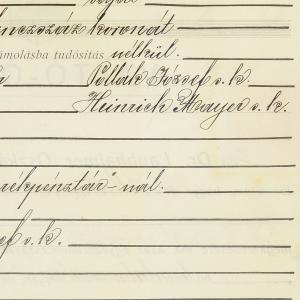 nczszáz koronát
ámolásba tudósítás nélkül.
Pollák József s. k.
Heinrich Mayer s. k.
rékpénztár"-nál.
ef s. k.